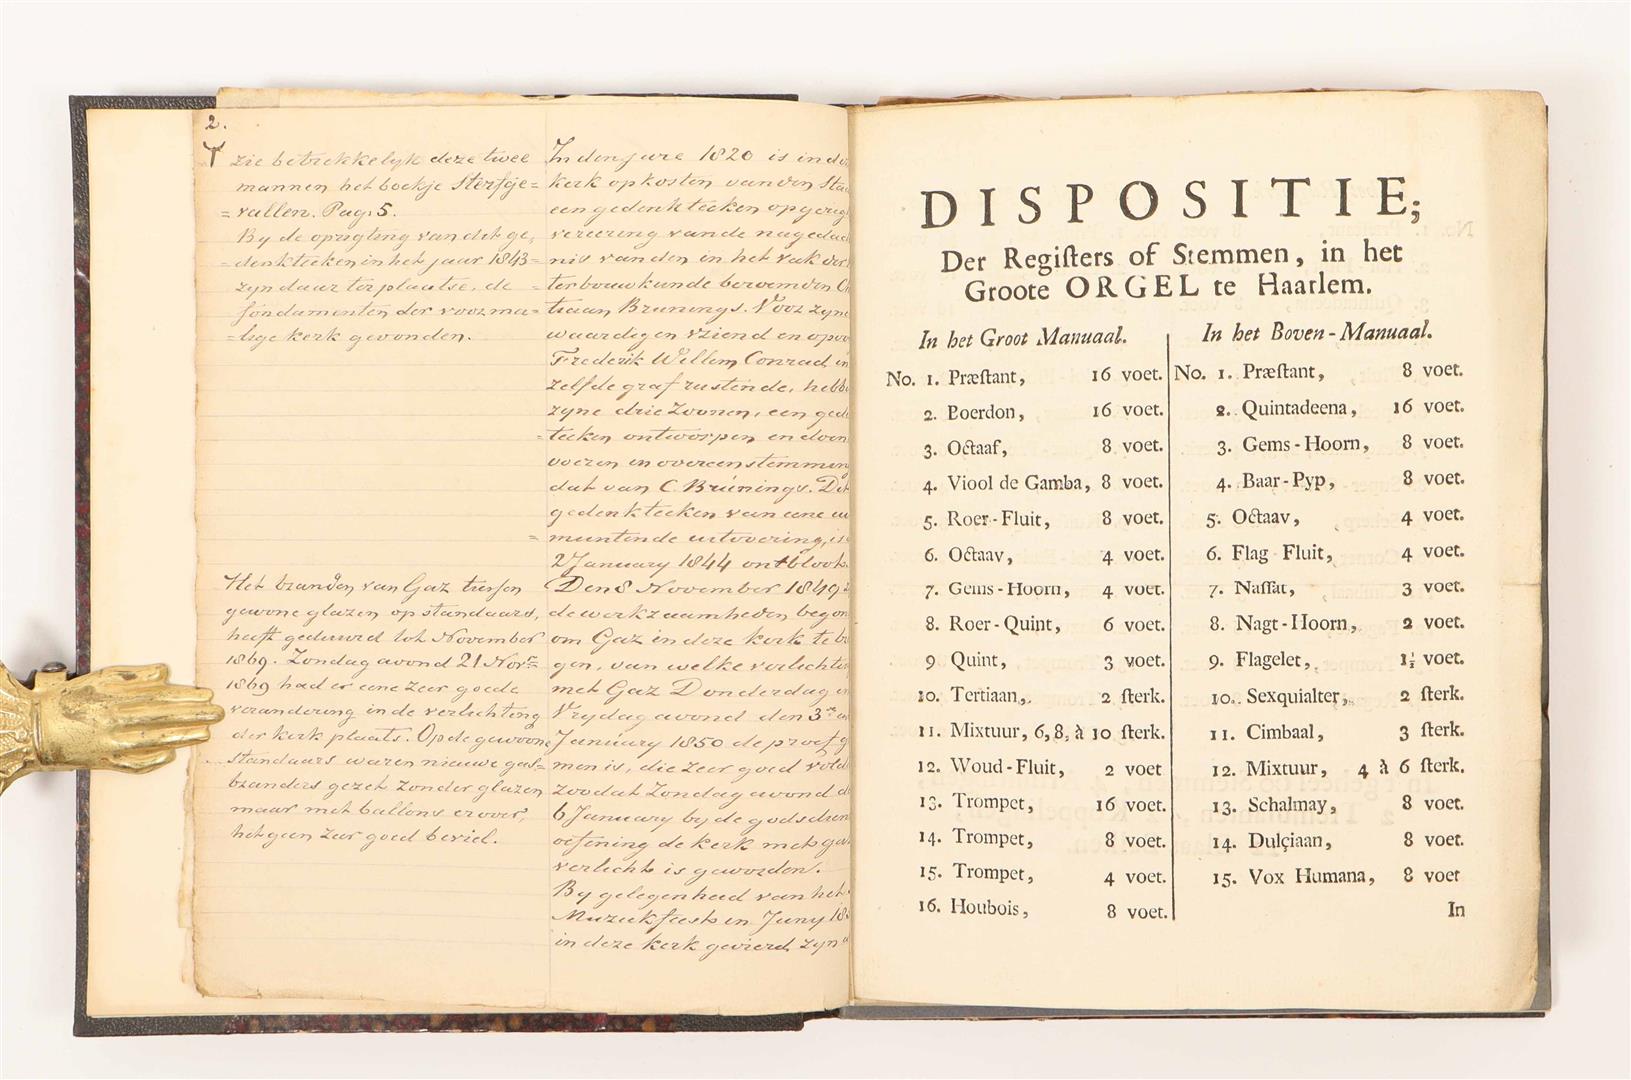 2.
zie betrekkelyk deze twee
mannen het boekje Sterfge=
=vallen. Pag. 5.
By de oprigting van dit ge,
=denkteeken in het jaar 1843
zyn daar ter plaatse, de
fondamenten der voorma=
=lige kerk gevonden.
Het branden van Gaz tussen
gewone glazen op standaars,
heeft geduurd tot November
1869. Zondag avond 21 Novr
1869 had er eene zeer goede
verandering in de verlichting
der kerk plaats. Op de gewoone
standaars waren nieuwe gas=
branders gezet zonder glazen
maar met ballons erover,
hetgeen zeer goed beviel.
In den jare 1820 is in de
kerk op kosten van den Sta
een gedenkteeken opgerig
vereering van de nagedach
nis van den in het vak der
=terbouwkunde beroemden
tiaan Brunings. Voor zyne
waardigen vriend en opvo
Frederik Willem Conrad in
zelfde graf rustende, hebbe
zyne drie Zoonen, een ged
=teeken ontworpen en doen
voeren in overeenstemming
dat van C. Brúnings. Dit
gedenkteeken van eene ui
=muntende uitvoering, is
2 January 1844 ontbloot.
Den 8 November 1849
de werkzaamheden begon
om Gaz in deze kerk te b
gen, van welke verlichting
met Gaz Donderdag en
Vrydag avond den 3en en
January 1850 de proef g
men is, die zeer goed vold
zoodat Zondag avond d
6 January by de godsdien
oefening de kerk met ga
verlicht is geworden.
By gelegenheid van het
Muziekfeest in Juny 18
in deze kerk gevierd zyn
DISPOSITIE;
Der Regiſters of Stemmen, in het
Groote ORGEL te Haarlem.
In het Groot Manuaal.
No. 1. Præſtant, 16 voet.
2. Boerdon, 16 voet.
3. Octaaf, 8 voet.
4. Viool de Gamba, 8 voet.
5. Roer-Fluit, 8 voet.
6. Octaav, 4 voet.
7. Gems-Hoorn, 4 voet.
8. Roer-Quint, 6 voet.
9 Quint, 3 voet.
10. Tertiaan, 2 ſterk.
11. Mixtuur, 6, 8, à 10 ſterk.
12. Woud-Fluit, 2 voet
13. Trompet, 16 voet.
14. Trompet, 8 voet.
15. Trompet, 4 voet.
16. Houbois, 8 voet.
In het Boven-Manuaal.
No. 1. Præſtant, 8 voet.
2. Quintadeena, 16 voet.
3. Gems-Hoorn, 8 voet.
4. Baar-Pyp, 8 voet.
5. Octaav, 4 voet.
6. Flag-Fluit, 4 voet.
7. Naſſat, 3 voet.
8. Nagt-Hoorn, 2 voet.
9. Flagelet, 1½ voet.
10. Sexquialter, 2 ſterk.
11. Cimbaal, 3 ſterk.
12. Mixtuur, 4 à 6 ſterk.
13. Schalmay, 8 voet.
14. Dulçiaan, 8 voet.
15. Vox Humana, 8 voet
In